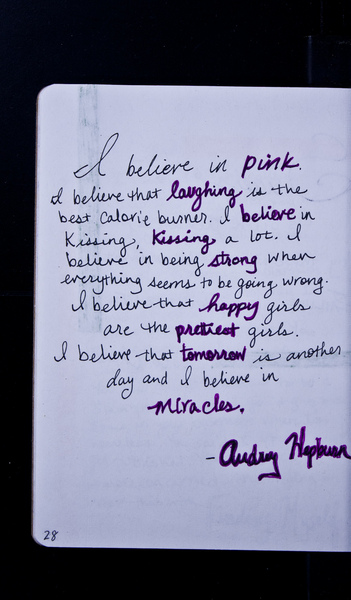 I believe in pink.
I believe that laughing is the
best calorie burner. I believe in
Kissing, Kissing a lot. I
believe in being strong when
everything seems to be going wrong.
I believe that happy girls
are the pretiest girls.
I believe that tomorrow is another
day and I believe in
miracles.
- Audrey Hepburn
28